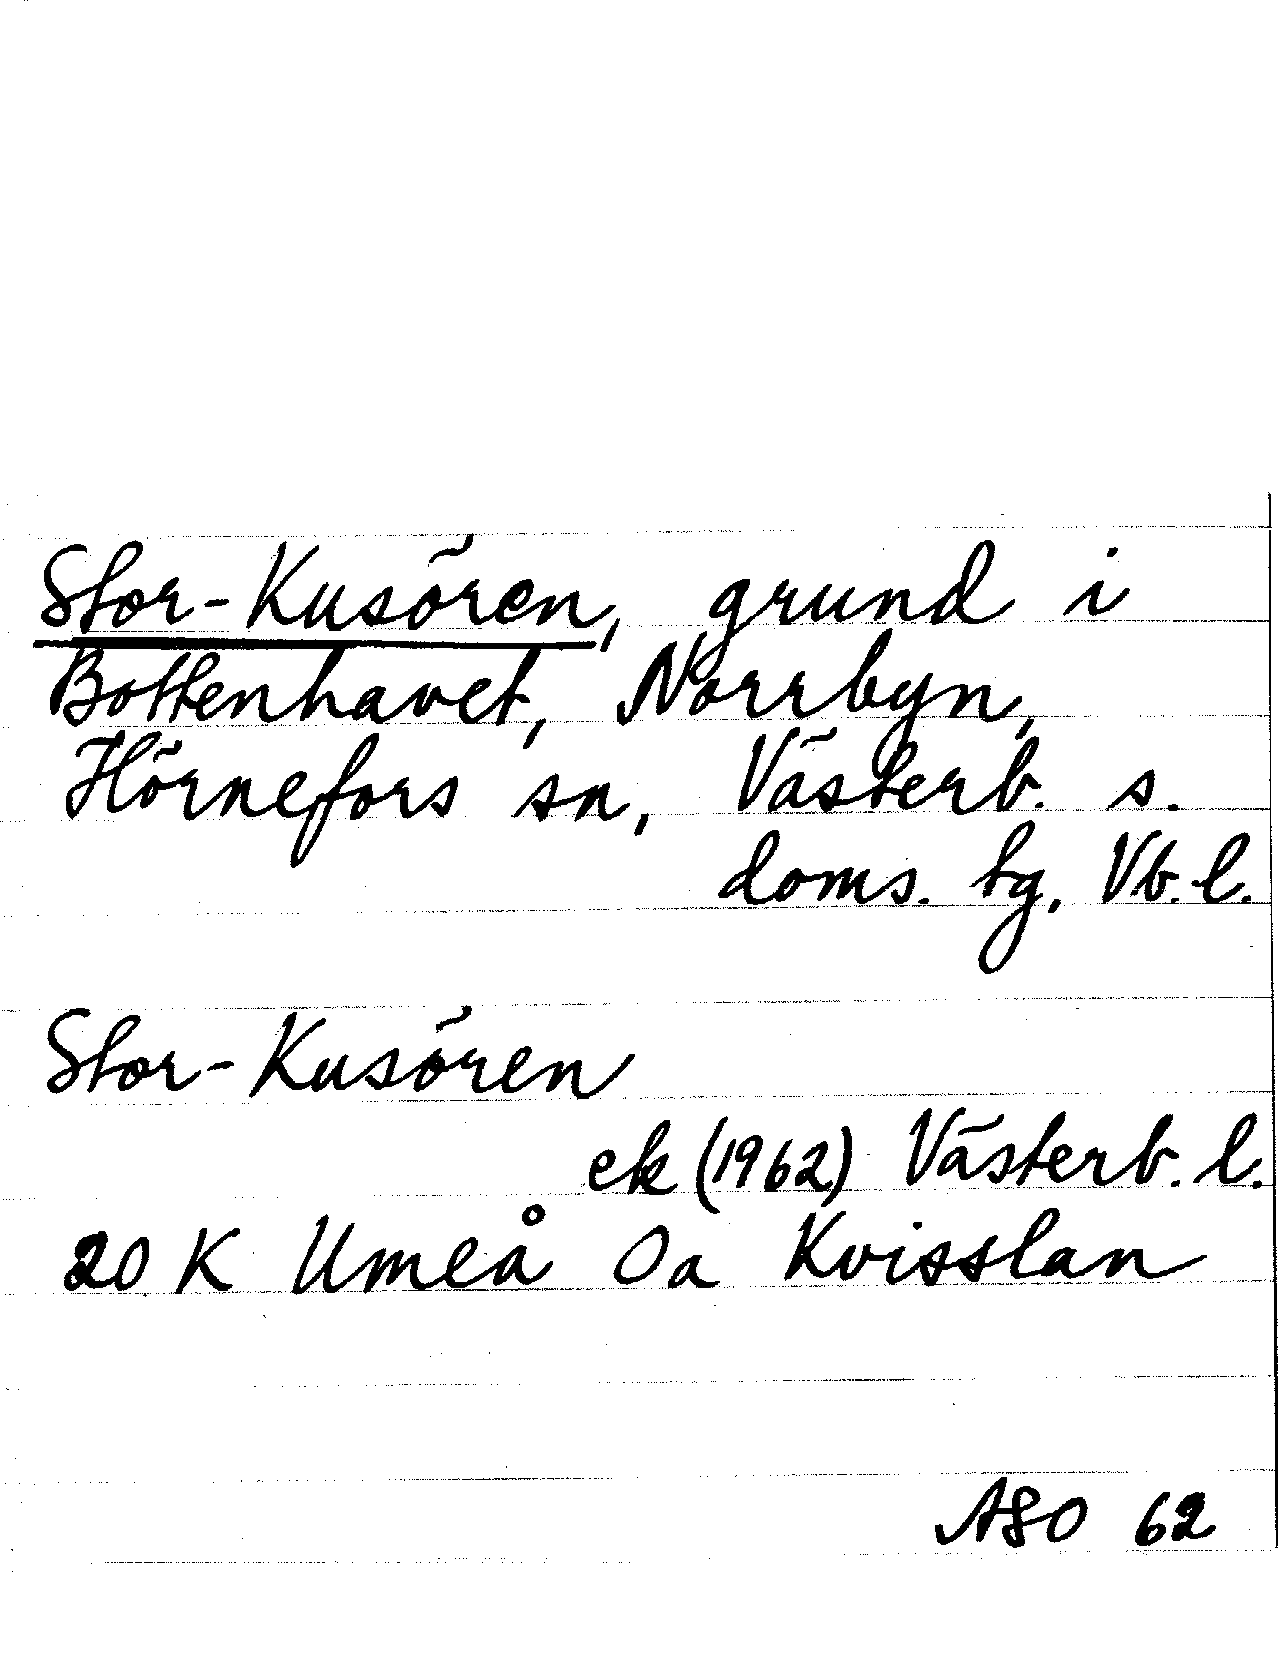 Stor-Kusören, grund i
Bottenhavet, Norrbyn,
Hörnefors sn, Västerb. s.
doms. tg, Vb. l.
Stor-Kusören
ek (1962) Västerb. l.
20 K Umeå Oa Kvisslan
ASO 62